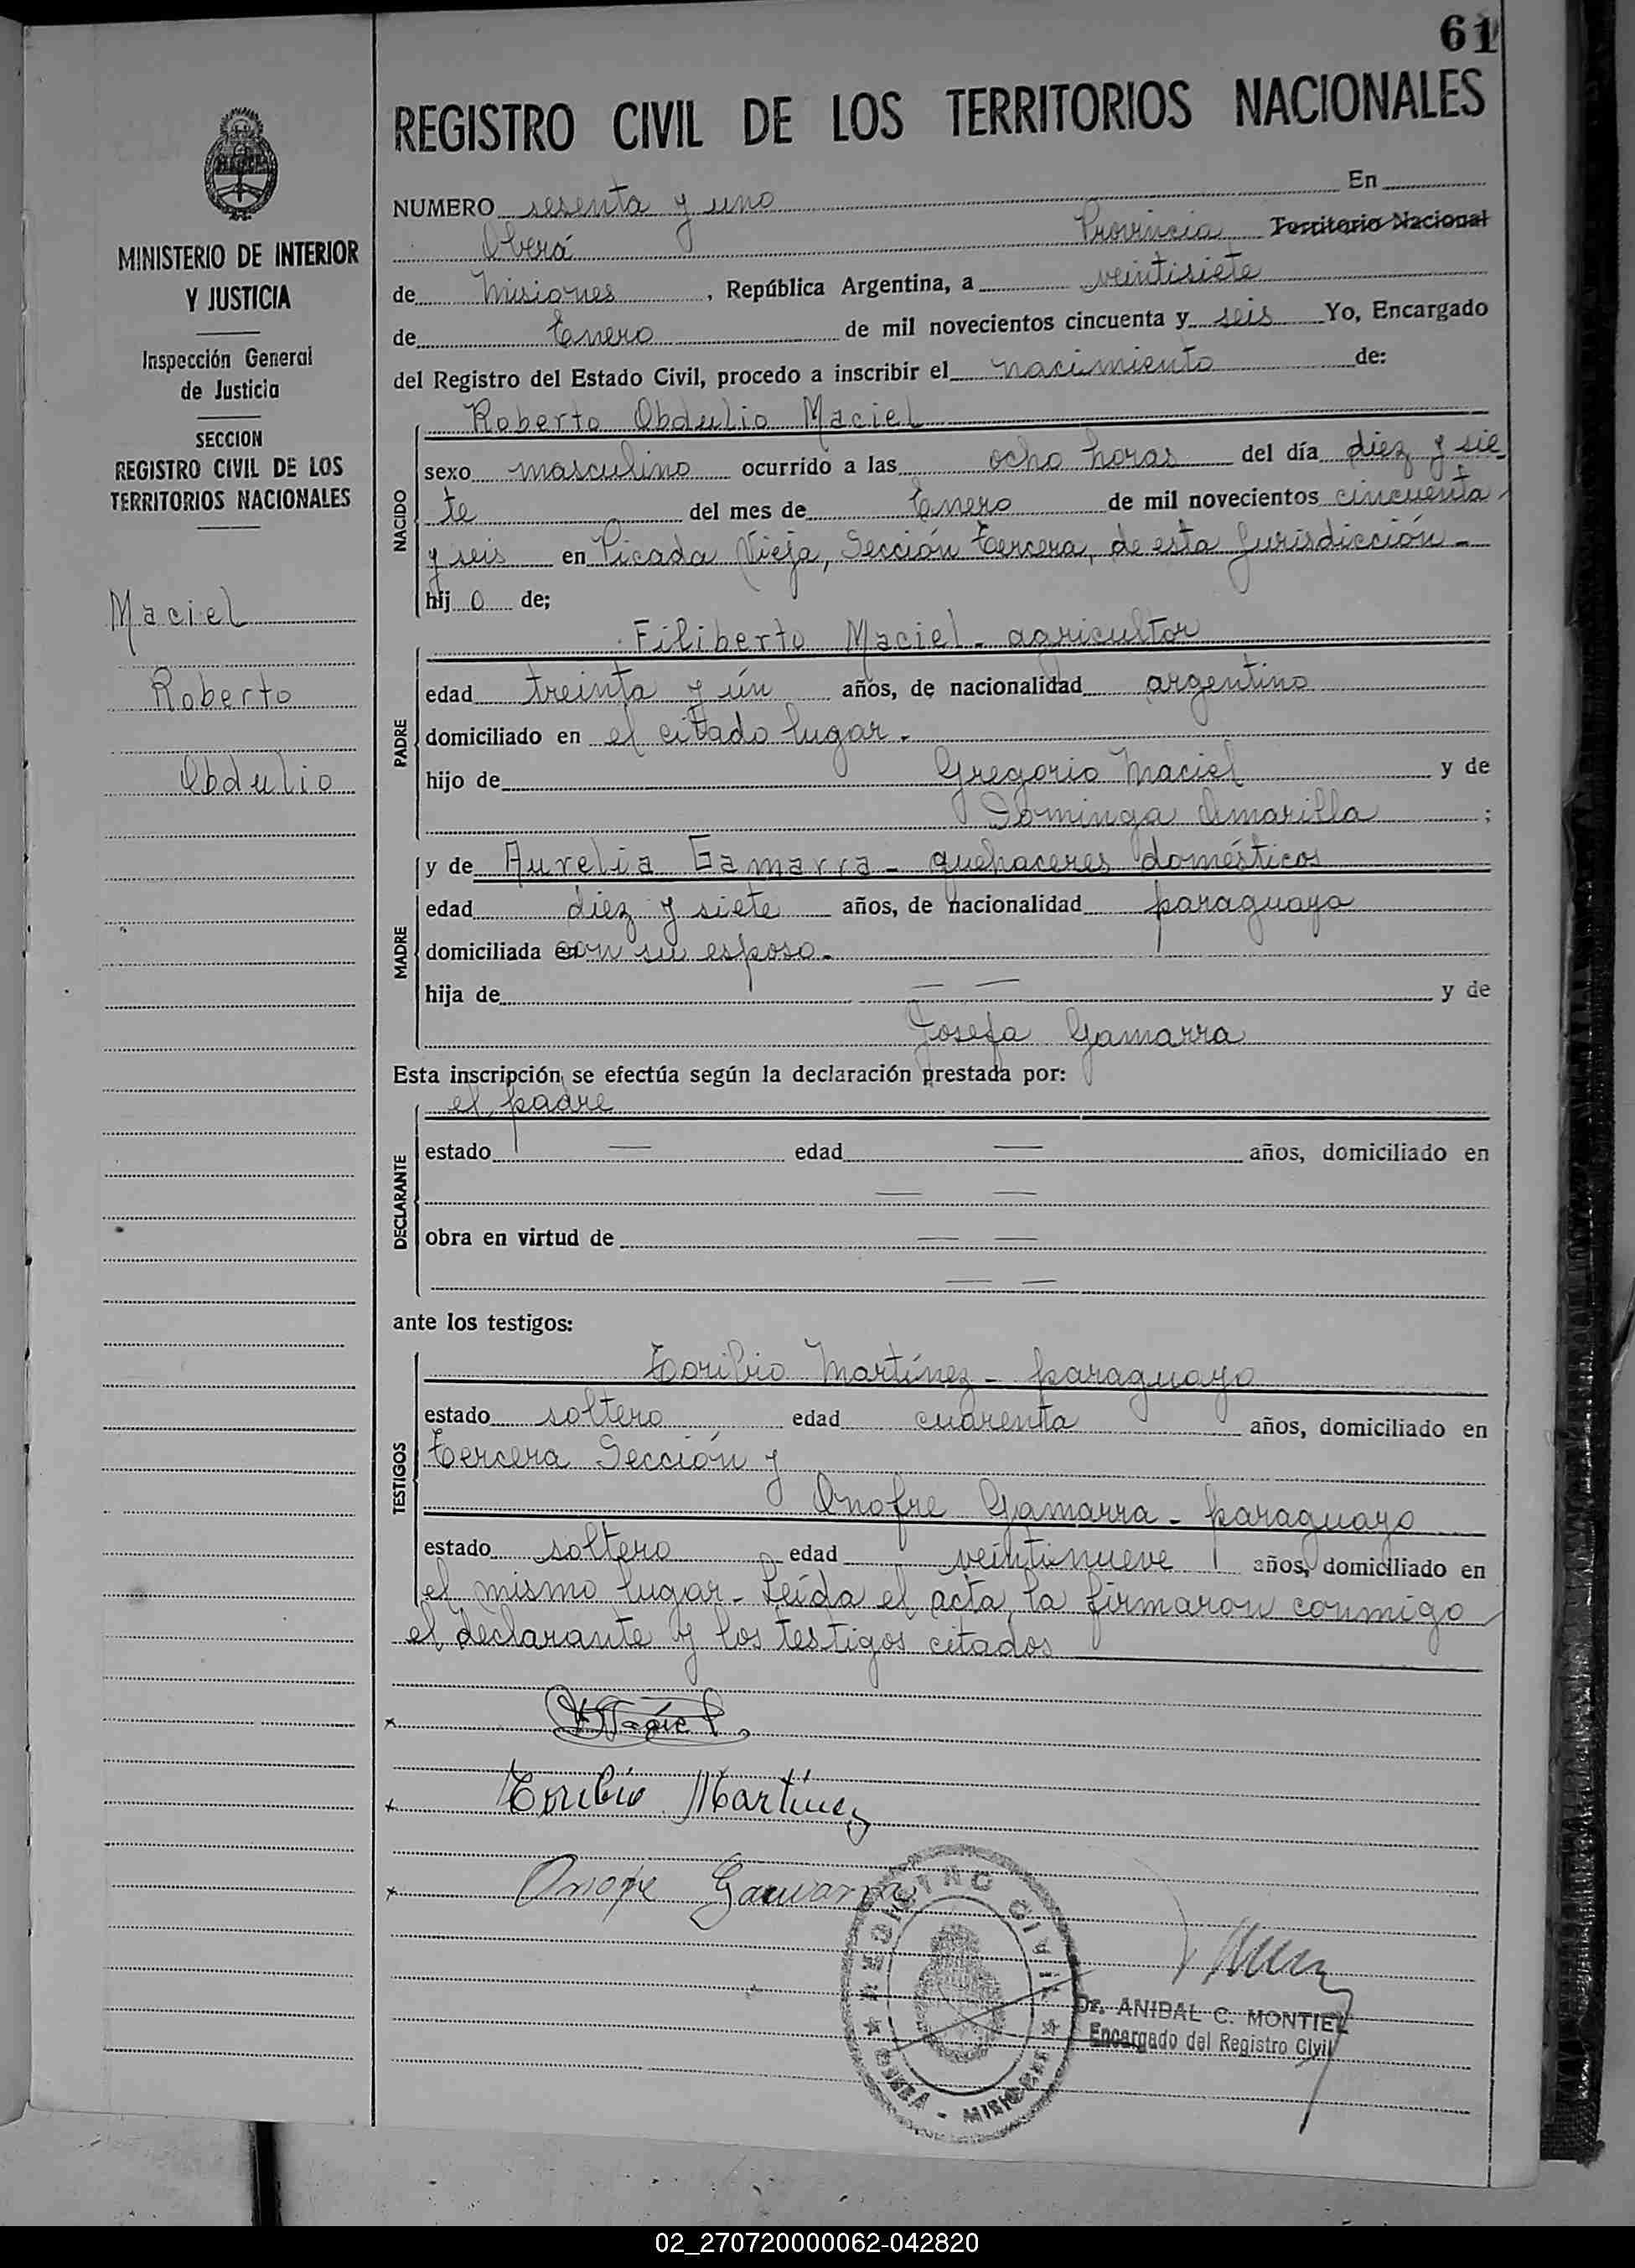 61
REGISTRO CIVIL DE LOS TERRITORIOS NACIONALES
MINISTERIO DE INTERIOR
Y JUSTICIA
Inspección General
de Justicia
SECCION
REGISTRO CIVIL DE LOS
TERRITORIOS NACIONALES
Maciel
Roberto
Obdulio
NUMERO sesenta y uno En
Oberá Provincia Territorio Nacional
de Misiones, República Argentina, a veintisiete
de Enero de mil novecientos cincuenta y seis Yo, Encargado
del Registro del Estado Civil, procedo a inscribir el nacimiento de:
NACIDO
Roberto Obdulio Maciel
sexo masculino ocurrido a las ocho horas del día diez y sie-
te del mes de Enero de mil novecientos cincuenta
y seis en Picada Vieja, Sección tercera, de esta Jurisdicción -
hijo de;
PADRE
Filiberto Maciel - agricultor
edad treinta y ún años, de nacionalidad argentino
domiciliado en el citado lugar -
hijo de Gregorio Maciel y de
Dominga Amarilla ;
MADRE
y de Aurelia Gamarra - quehaceres domésticos
edad diez y siete años, de nacionalidad paraguaya
domiciliada con su esposo -
hija de — — y de
Josefa Gamarra
Esta inscripción, se efectúa según la declaración prestada por:
DECLARANTE
el padre
estado — edad — años, domiciliado en
— —
obra en virtud de — —
— —
ante los testigos:
TESTIGOS
Toribio Martínez - paraguayo
estado soltero edad cuarenta años, domiciliado en
tercera Sección y
Onofre Gamarra - paraguayo
estado soltero edad veintinueve años, domiciliado en
el mismo lugar - Leída el acta, la firmaron conmigo
el declarante y los testigos citados
x Maciel
x Toribio Martinez
x Onofre Gamarra
REGISTRO CIVIL
OBERA - MISIONES
Dr. ANIBAL C. MONTIEL
Encargado del Registro Civil
02_270720000062-042820